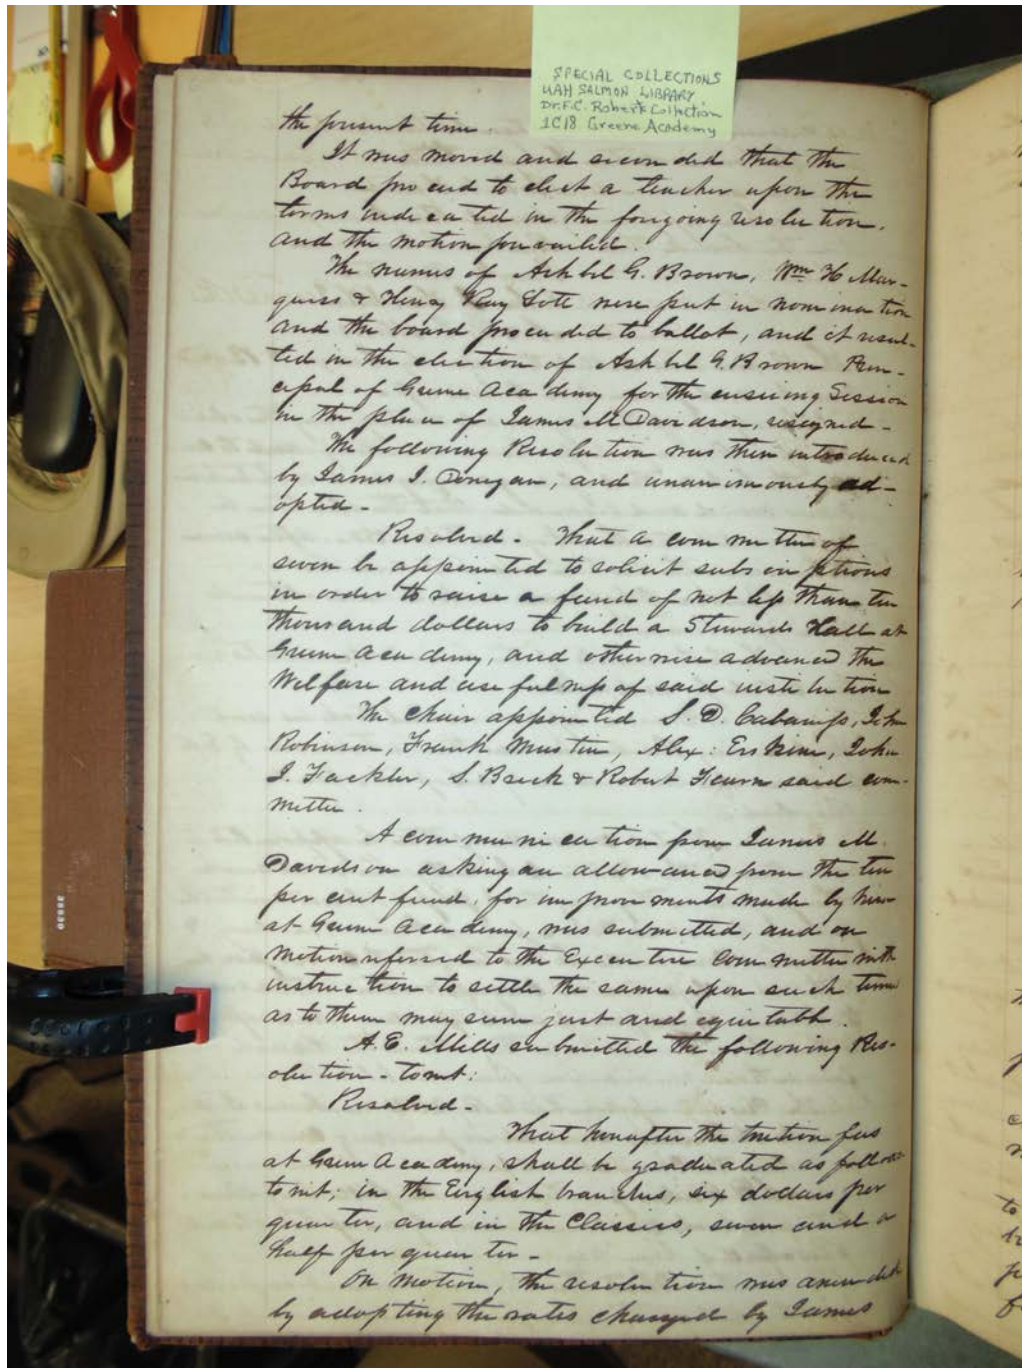 SPECIAL COLLECTIONS
UAH SALMON LIBRARY
Dr. F.C. Robert Collection
1C18 Greene Academy
the present time.
It was moved and seconded that the
Board proceed to elect a teacher upon the
terms indicated in the foregoing resolution.
and the motion prevailed.
The names of Ashbel G. Brown, Wm H Mar-
quiss & Henry Ray Lott were put in nomination
and the board proceeded to ballot, and it resul-
ted in the election of Ashbel G. Brown Prin-
cipal of Greene Academy for the ensuing Session
in the place of James M Davidson, resigned -
The following Resolution was then introduced
by James J. Donegan, and unanimously ad-
opted -
Resolved - That a committee of
seven be appointed to solicit subscriptions
in order to raise a fund of not less than ten
thousand dollars to build a Stewards Hall at
Greene Academy, and otherwise advance the
Welfare and usefulness of said institution
The Chair appointed S. D. Cabaniss, John
Robinson, Frank Mustin, Alex: Erskine, John
J. Fackler, S. Breck & Robert Fearn said com-
mittee.
A communication from James M.
Davidson asking an allowance from the ten
per cent fund, for improvements made by him
at Greene Academy, was submitted, and on
Motion referred to the Executive Committee with
instruction to settle the same upon such terms
as to them may seem just and equitable.
A. E. Mills submitted the following Res-
olution - towit:
Resolved -
That hereafter the tuition fees
at Greene Academy, shall be graduated as follows
towit; in the English branches, six dollars per
quarter, and in the Classics, seven and a
half per quarter -
On Motion, the resolution was amended
by adopting the rates charged by James